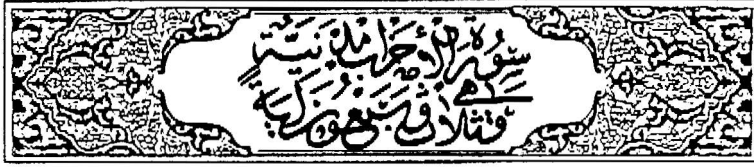 سورة الأحزاب مدنية
وهي ثلاث وسبعون آية